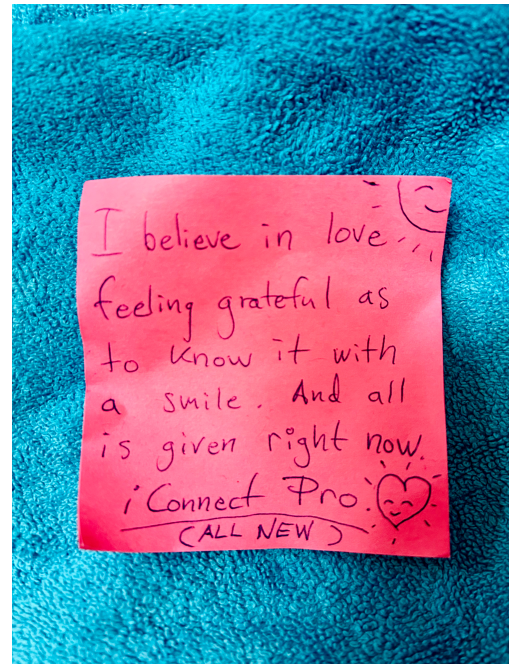 I believe in love
feeling grateful as
to know it with
a smile. And all
is given right now.
i Connect Pro.
(ALL NEW)